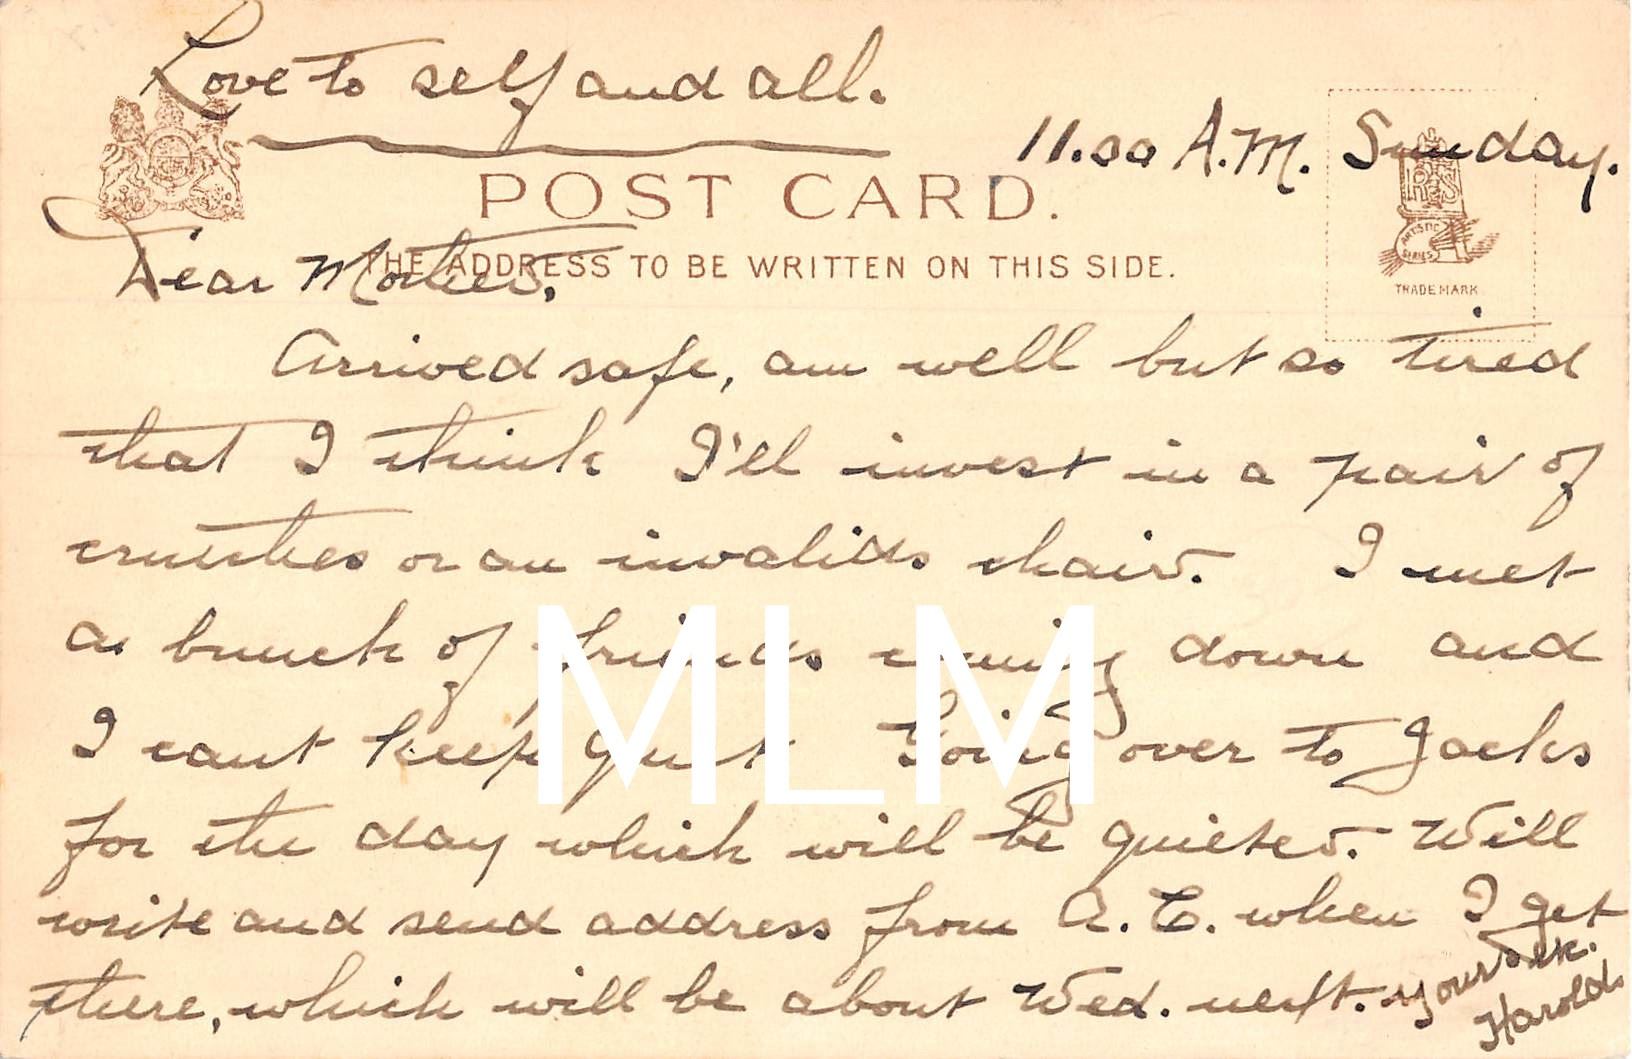 Love to self and all.
11.00 A.M. Sunday.
POST CARD.
THE ADDRESS TO BE WRITTEN ON THIS SIDE.
R&S
ARTISTIC SERIES
TRADE MARK
Dear Mother,
Arrived safe, am well but so tired
that I think I'll invest in a pair of
crutches or an invalids chair. I met
a bunch of friends coming down and
I cant keep quiet Going over to Jacks
for the day which will be quieter. Will
write and send address from A. C. when I get
there, which will be about Wed. next. Your
Harold.
MLM